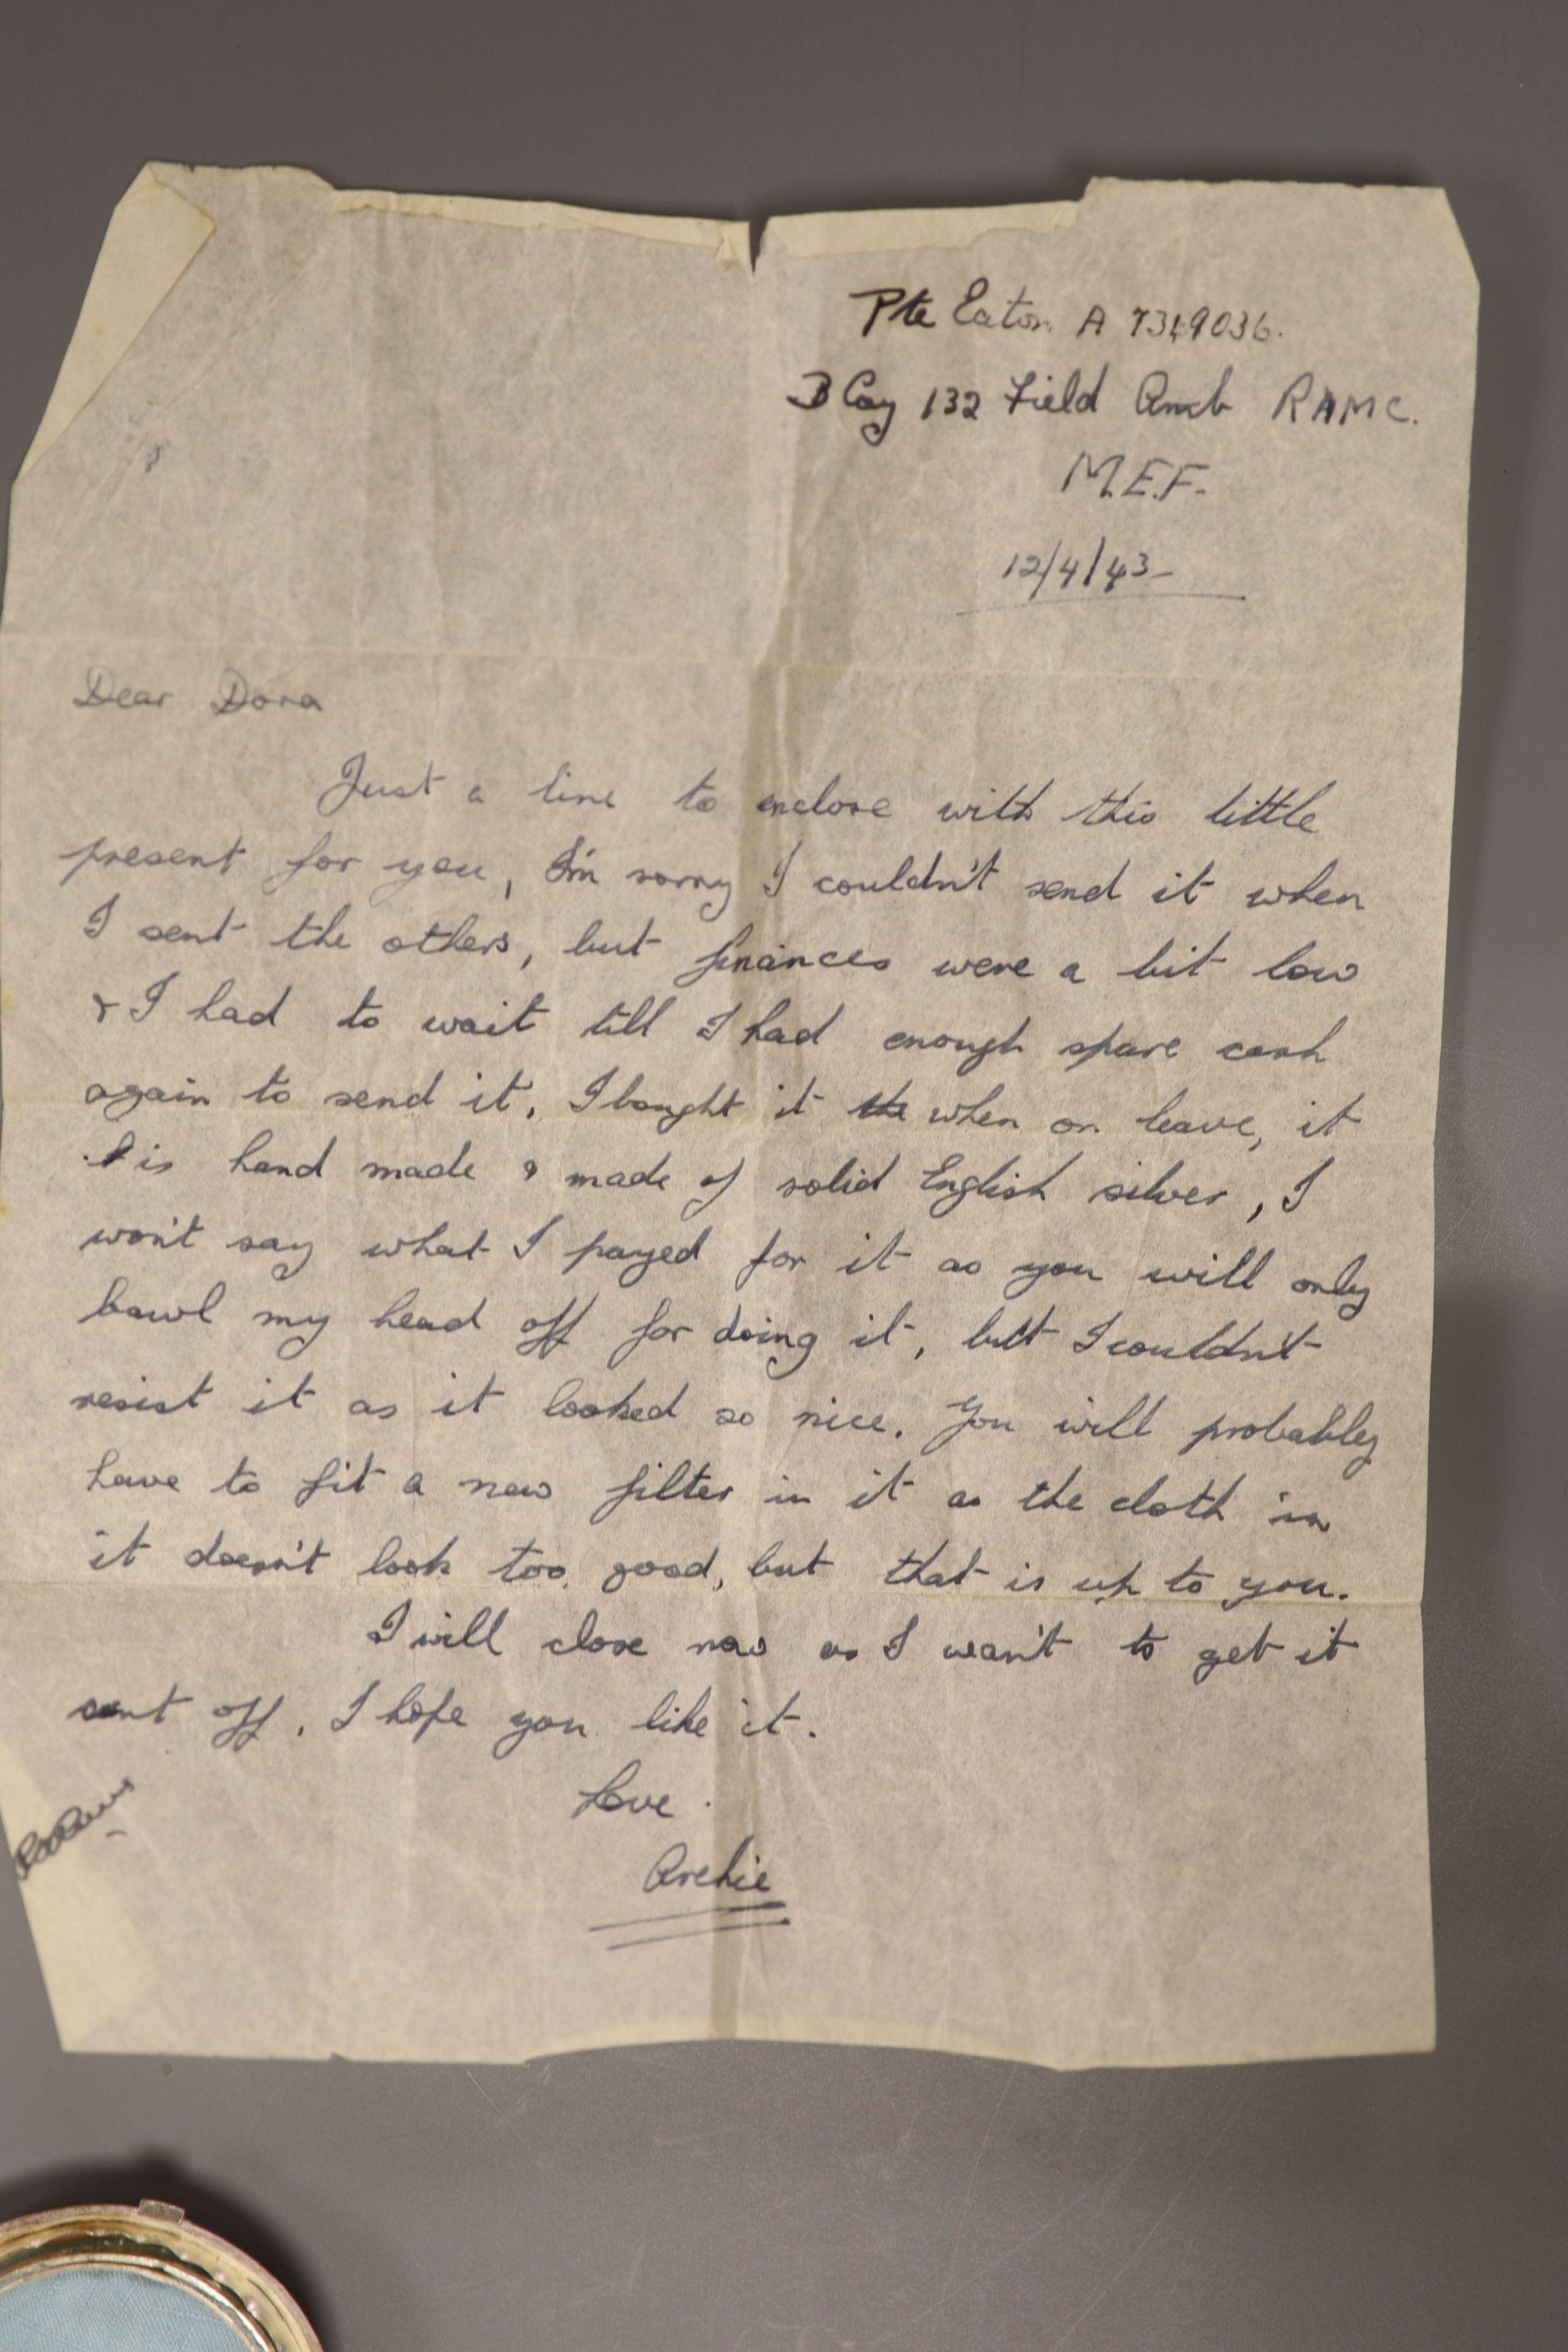 Pte Eaton A 7349036.
B Coy 132 Field Amb RAMC.
M.E.F.
12/4/43-
Dear Dora
Just a line to enclose with this little
present for you, I'm sorry I couldn't send it when
I sent the others, but finances were a bit low
& I had to wait till I had enough spare cash
again to send it, I bought it the when on leave, it
is hand made & made of solid English silver, I
won't say what I payed for it as you will only
bawl my head off for doing it, but I couldn't
resist it as it looked so nice. You will probably
have to fit a new filter in it as the cloth in
it doesn't look too good, but that is up to you.
I will close now as I wan't to get it
sent off, I hope you like it.
Love.
Archie